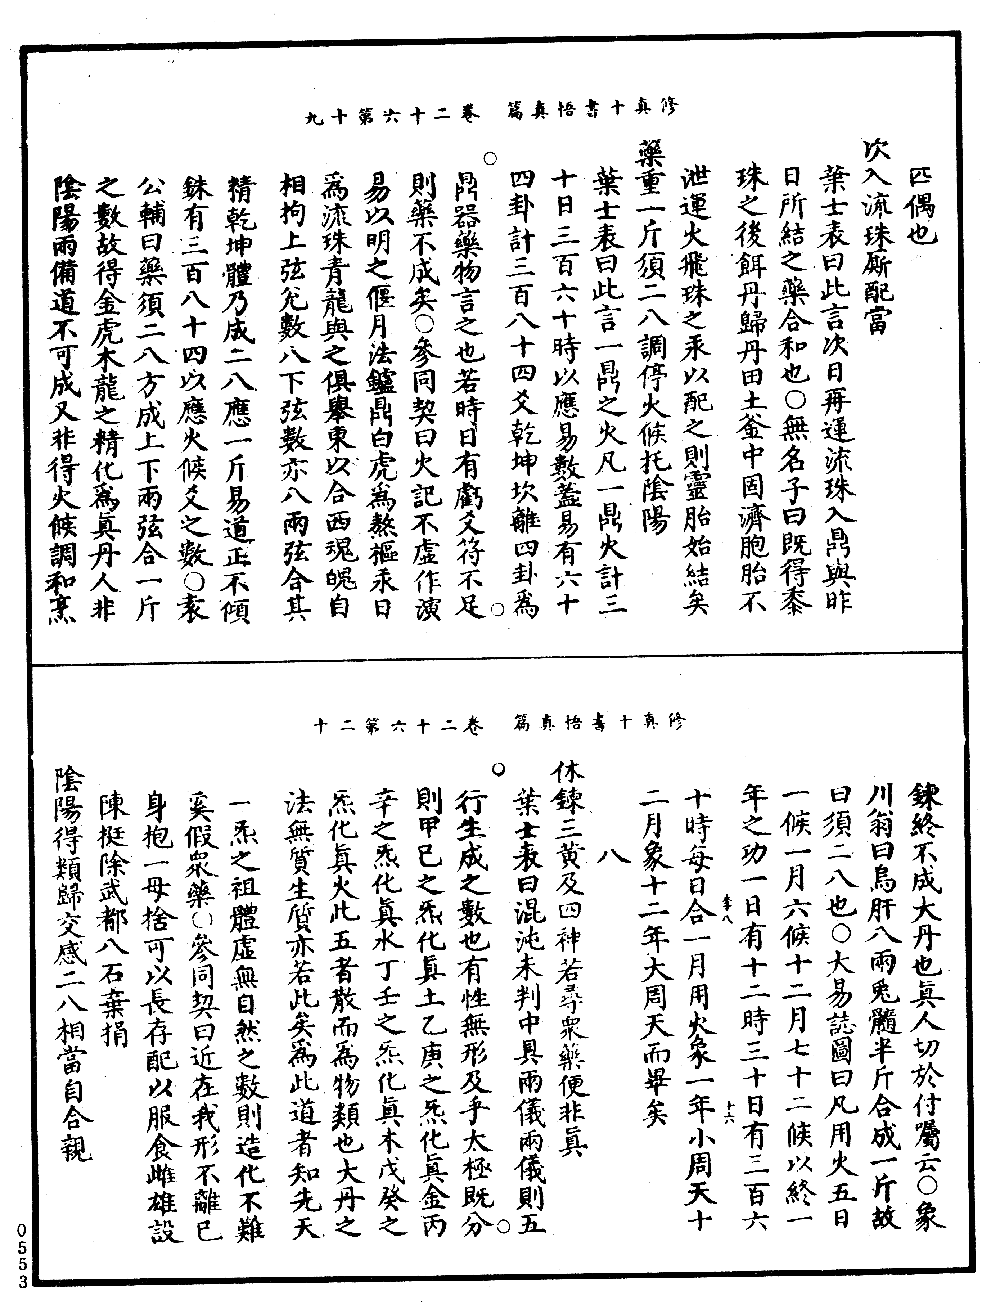 修真十書悟真篇　卷二十六第十九
匹偶也
次入流珠厮配當
葉士表曰此言次日再運流珠入鼎與昨
日所結之藥合和也○無名子曰既得黍
珠之後餌丹歸丹田土釜中固濟胞胎不
泄運火飛珠之汞以配之則靈胎始結矣
藥重一斤須二八調停火候托陰陽
葉士表曰此言一鼎之火凡一鼎火計三
十日三百六十時以應易數蓋易有六十
四卦計三百八十四爻乾坤坎離四卦爲
鼎器藥物言之也若時日有虧爻符不足
則藥不成矣○參同契曰火記不虛作演
易以明之偃月法鑪鼎白虎爲熬樞汞日
爲流珠青龍與之俱舉東以合西魂魄自
相拘上弦兊數八下弦數亦八兩弦合其
精乾坤體乃成二八應一斤易道正不傾
銖有三百八十四以應火候爻之數○袁
公輔曰藥須二八方成上下兩弦合一斤
之數故得金虎木龍之精化爲真丹人非
陰陽兩備道不可成又非得火候調和烹
修真十書悟真篇　卷二十六第二十
鍊終不成大丹也真人切於付囑云○象
川翁曰烏肝八兩兎髓半斤合成一斤故
曰須二八也○大易誌圖曰凡用火五日
一候一月六候十二月七十二候以終一
年之功一日有十二時三十日有三百六
十時每日合一月用火象一年小周天十
二月象十二年大周天而畢矣
八
休鍊三黃及四神若尋衆藥便非真
葉士表曰混沌未判中具兩儀兩儀則五
行生成之數也有性無形及乎太極既分
則甲己之炁化真土乙庚之炁化真金丙
辛之炁化真水丁壬之炁化真木戊癸之
炁化真火此五者散而爲物類也大丹之
法無質生質亦若此矣爲此道者知先天
一炁之祖體虛無自然之數則造化不難
奚假衆藥○參同契曰近在我形不離已
身抱一母捨可以長存配以服食雌雄設
陳挺除武都八石棄捐
陰陽得類歸交感二八相當自合親
李八
十六
0553